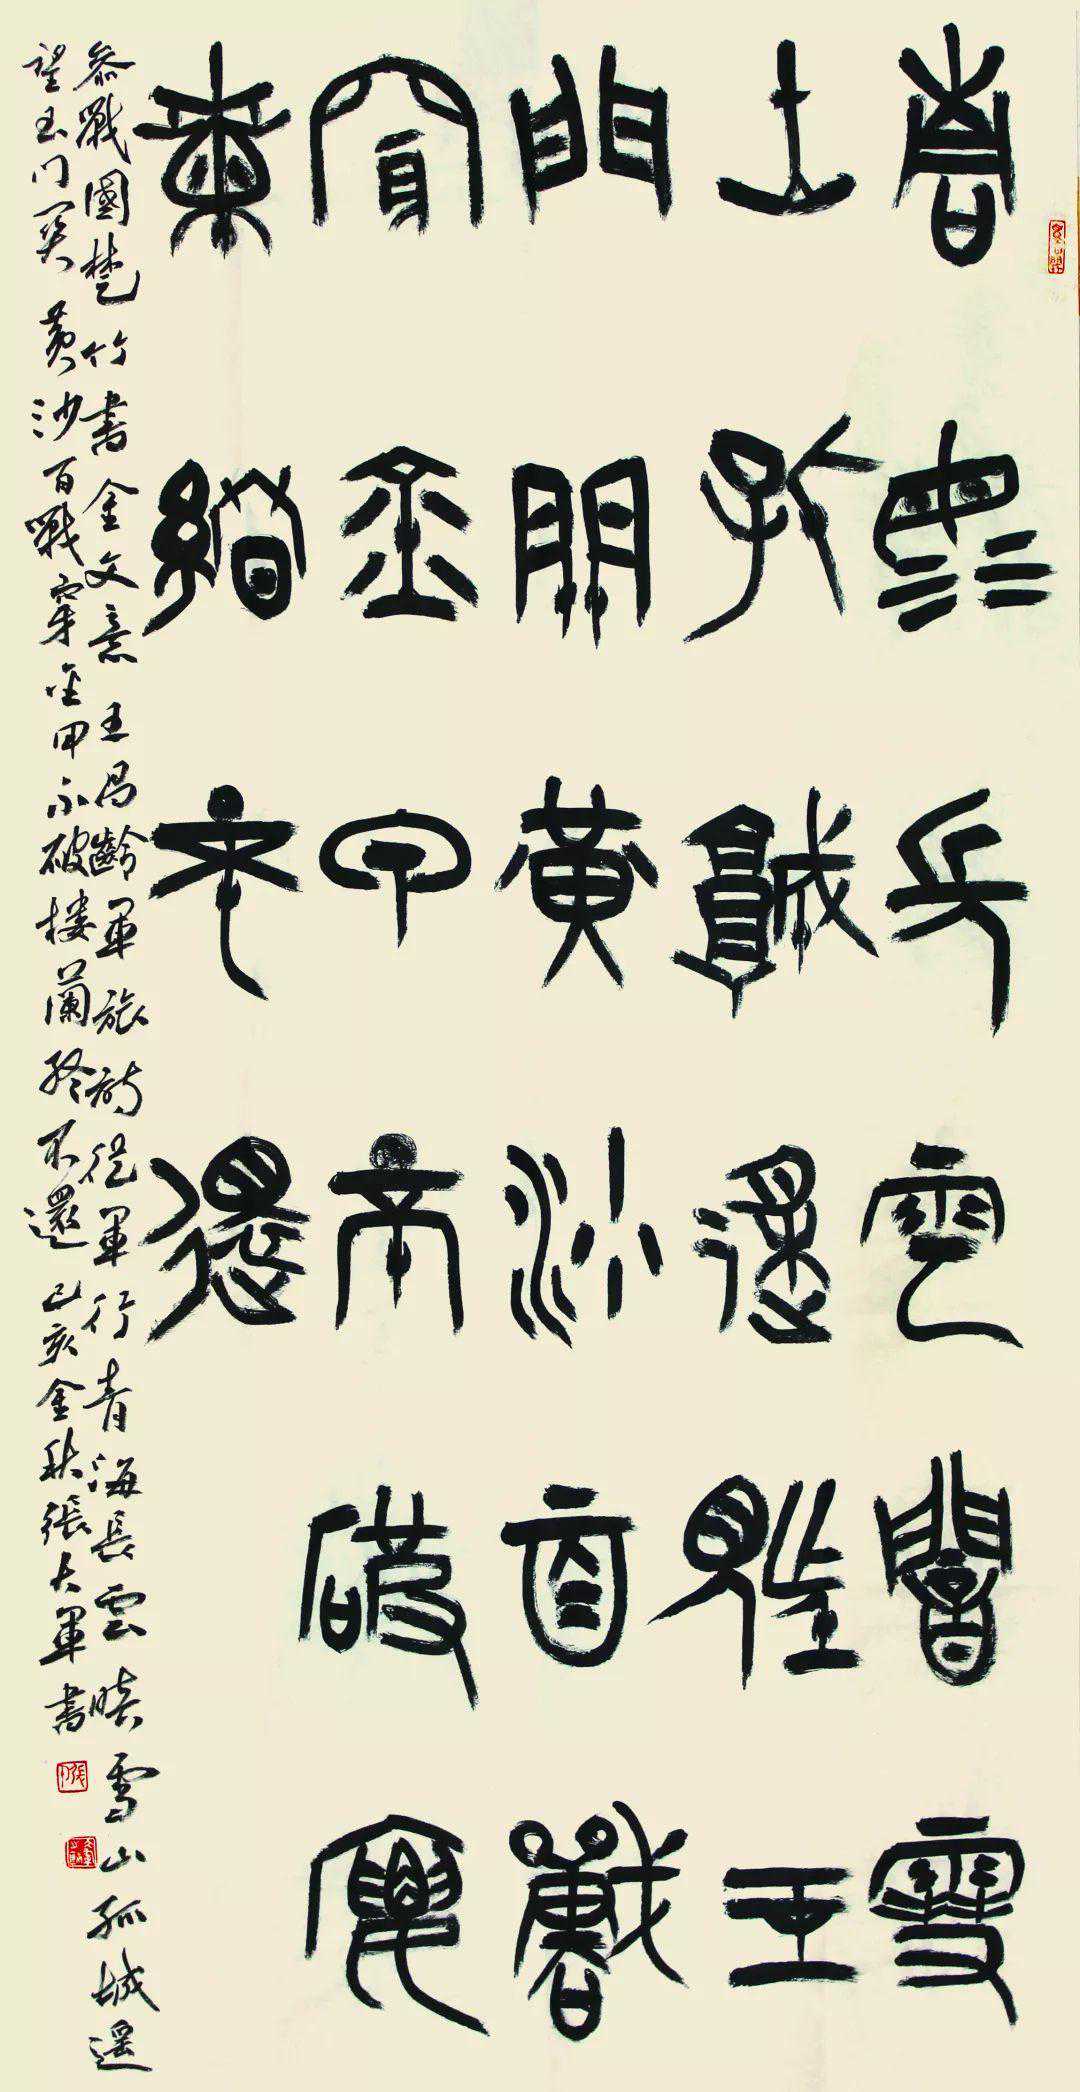 青海長雲暗雪
山孤城遥望玉
門關黄沙百戰
穿金甲不破樓
蘭終不還
参戰國楚竹書金文意王昌齡軍旅詩從軍行青海長雲暗雪山孤城遥
望玉门关黄沙百戰穿金甲不破楼蘭終不還己亥金秋張大軍書